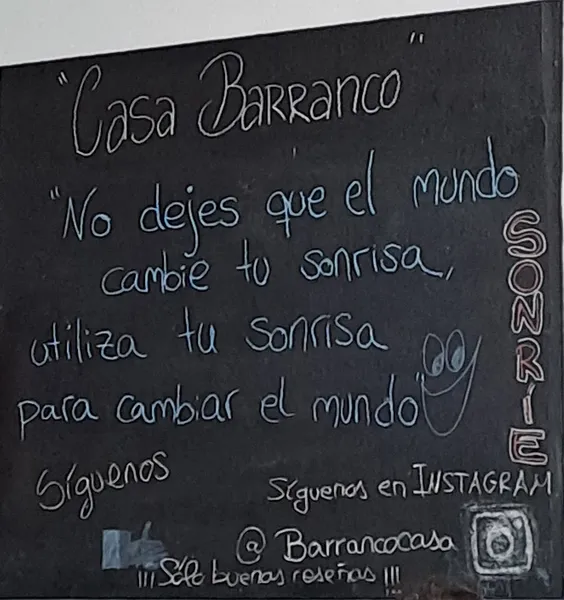 "Casa Barranco"
"No dejes que el mundo
cambie tu sonrisa,
utiliza tu sonrisa
para cambiar el mundo"
SONRIE
Síguenos
Síguenos en INSTAGRAM
@ Barrancocasa
¡¡¡Sólo buenas reseñas!!!